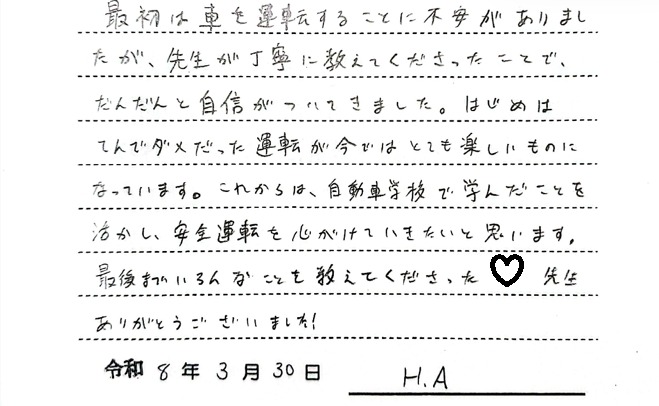 最初は車を運転することに不安がありまし
たが、先生が丁寧に教えてくださったことで、
だんだんと自信がついてきました。はじめは
てんでダメだった運転が今ではとても楽しいものに
なっています。これからは、自動車学校で学んだことを
活かし、安全運転を心がけていきたいと思います。
最後までいろんなことを教えてくださった♡先生
ありがとうございました!
令和 8 年 3 月 30 日 H.A